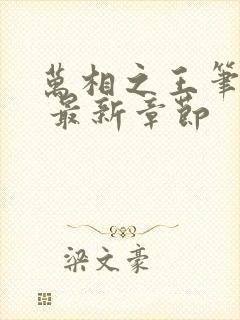 萬相之王筆
最新章節
梁文豪